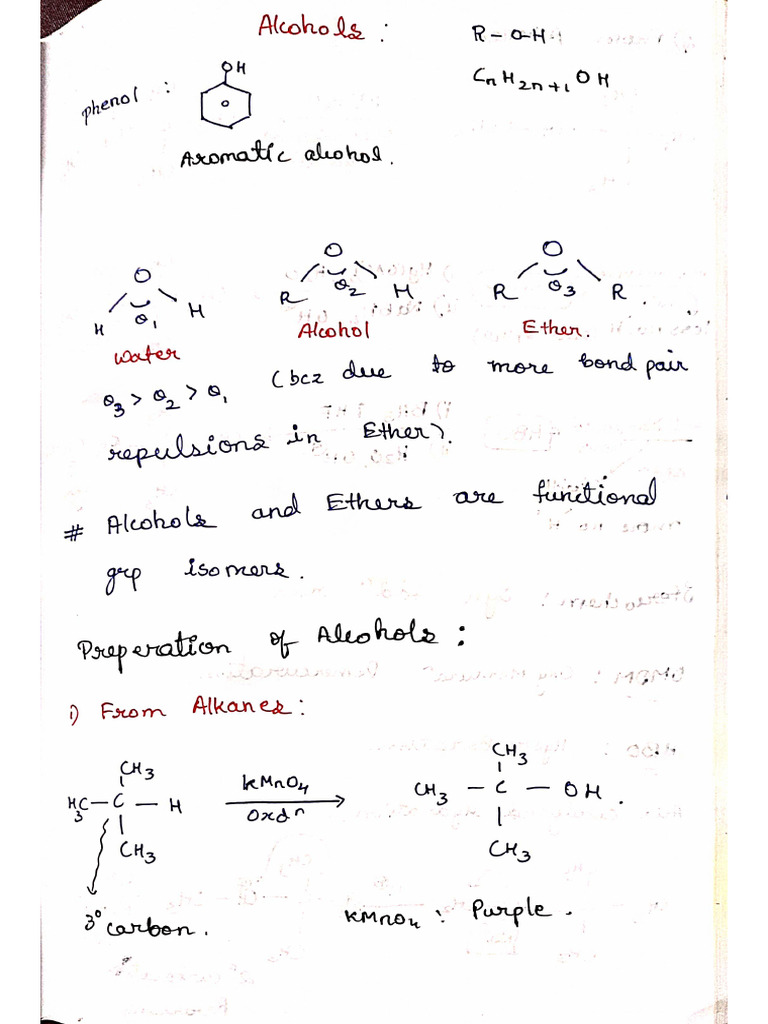 Alcohols :
R - O - H
CnH2n+1 OH
phenol :
OH
Aromatic alcohol.
O
O
O
H θ1 H
R θ2 H
R θ3 R.
water
Alcohol
Ether.
θ3 > θ2 > θ1 (bcz due to more bond pair
repulsions in Ether).
# Alcohols and Ethers are functional
grp isomers.
Preperation of Alcohols :
i) From Alkanes :
CH3
CH3
H3C - C - H
KMnO4
Oxdn
CH3 - C - OH.
CH3
CH3
3° carbon.
KMnO4 : Purple.